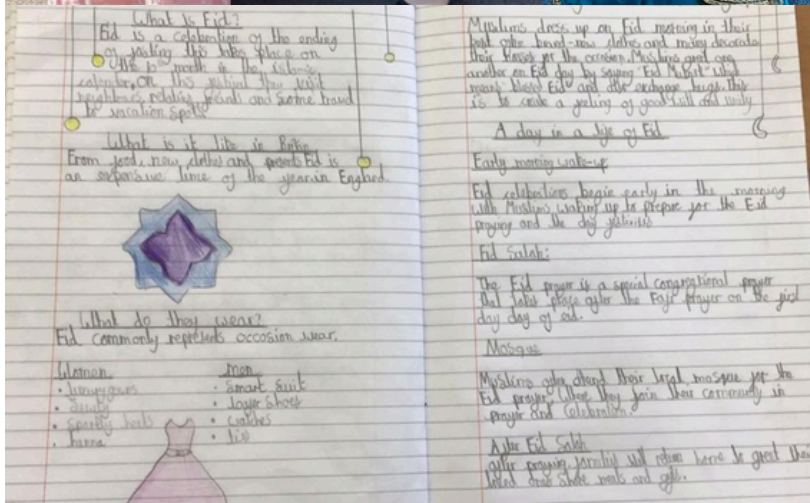 What is Eid?
Eid is a celebration of the ending
of fasting this takes place on
the 10th month in the islamic
calendar, on this they visit
neighbours, relatives, friends and some travel
to vacation spots
What is it like in
From food, new clothes and presents Eid is
an expensive time of the year in England.
What do they wear?
Eid commonly represents occosion wear.
Women
•
•
• sparkly heels
• henna
men
• Smart suit
• shoes
• watches
•
Muslims dress up on Eid morning in their
best often brand-new clothes and many decorate
their homes for the occasion. Muslims greet one
another on Eid day by saying "Eid Mubarak" which
means blessed Eid and often exchange hugs. This
is to create a feeling of good will and unity
A day in a life of Eid
Early morning wake-up
Eid celebrations begin early in the morning
with Muslims waking up to prepare for the Eid
praying and the day
Eid Salah:
The Eid prayer is a special congregational prayer
that takes place after the Fajr prayer on the first
day day of eid.
Mosque
Muslims often attend their local mosque for the
Eid prayer, where they join their community in
prayer and celebration.
After Eid Salah
after praying families will return home to great their
loved ones share meals and gifts.